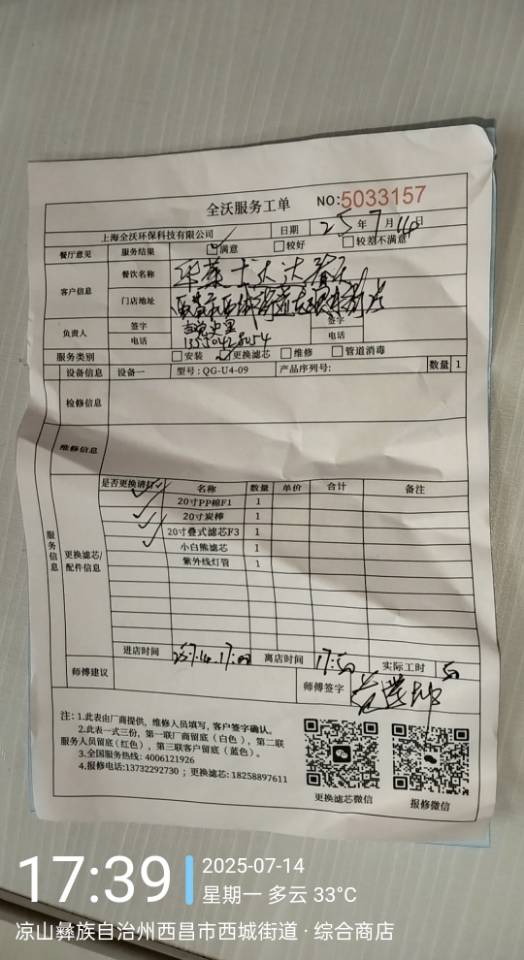 全沃服务工单 NO:5033157
上海全沃环保科技有限公司 日期 25年7月14日
餐厅意见 服务结果 ☑满意 □较好 □较差不满意
客户信息 餐饮名称 华莱士
门店地址
负责人 签字 签字
电话 电话
服务类别 □安装 ☑更换滤芯 □维修 □管道消毒
设备信息 设备一 型号:QG-U4-09 产品序列号: 数量 1
检修信息
维修信息
服务信息
更换滤芯/配件信息
是否更换请打✓ 名称 数量 单价 合计 备注
✓ 20寸PP棉F1 1
✓ 20寸炭棒 1
✓ 20寸叠式滤芯F3 1
✓ 小白熊滤芯 1
紫外线灯管 1
进店时间 25.7.14.17:00 离店时间 17:50 实际工时 50
师傅建议 师傅签字
注:1.此表由厂商提供,维修人员填写,客户签字确认。
2.此表一式三份,第一联厂商留底(白色),第二联
服务人员留底(红色),第三联客户留底(蓝色)。
3.全国服务热线:4006121926
4.报修电话:13732292730;更换滤芯:18258897611
更换滤芯微信 报修微信
17:39 2025-07-14
星期一 多云 33°C
凉山彝族自治州西昌市西城街道·综合商店